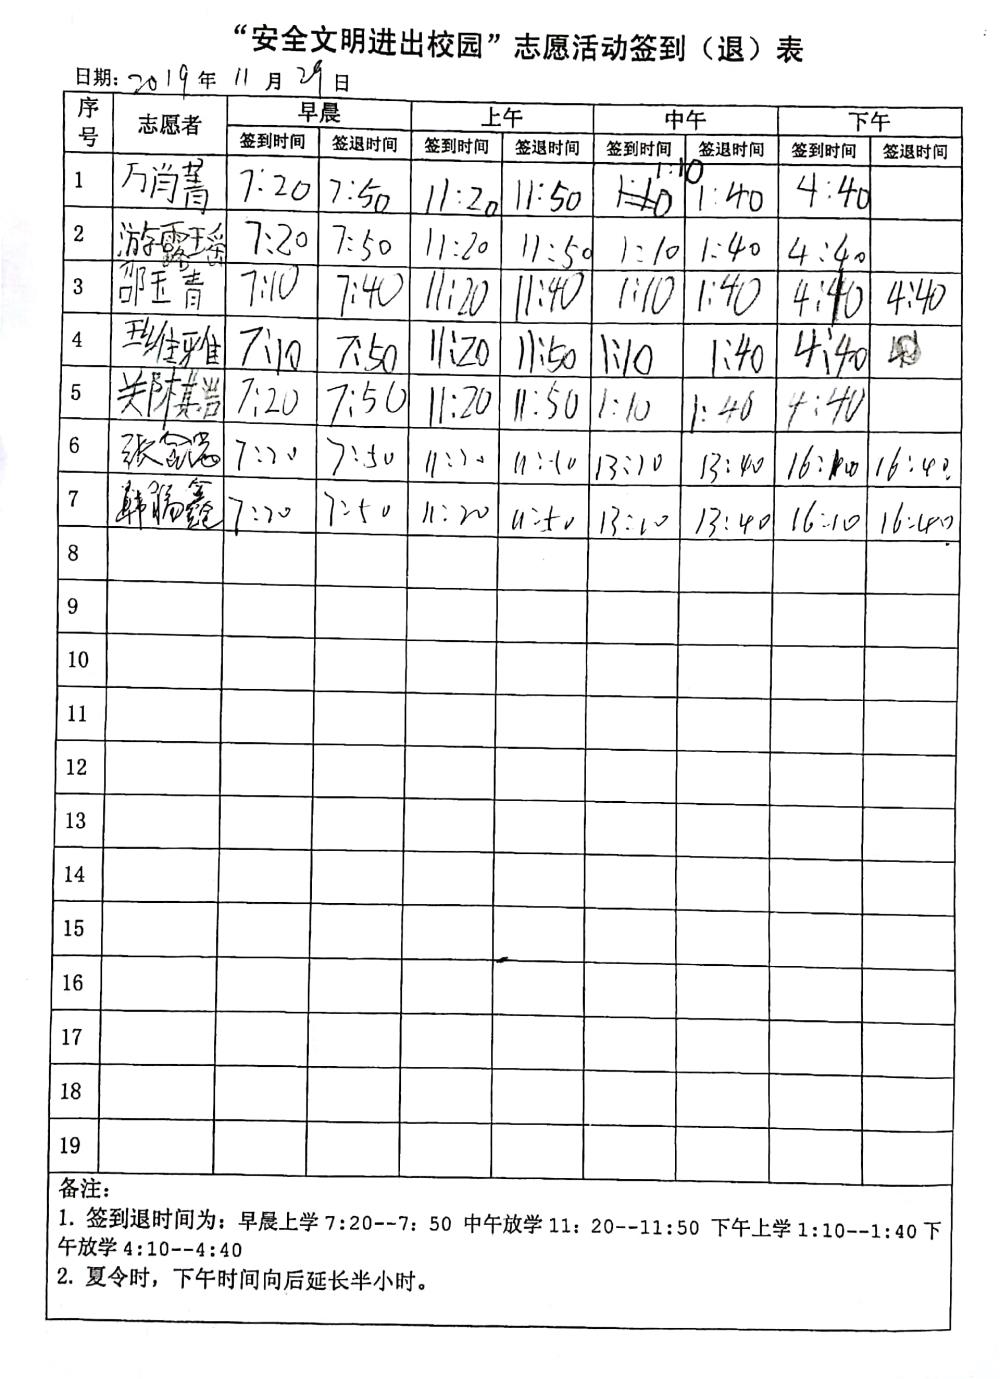 “安全文明进出校园”志愿活动签到（退）表
日期: 2019年 11月 29日
序号 志愿者 早晨 上午 中午 下午
签到时间 签退时间 签到时间 签退时间 签到时间 签退时间 签到时间 签退时间
1 万肖菁 7:20 7:50 11:20 11:50 1:10 1:40 4:40
2 游露瑶 7:20 7:50 11:20 11:50 1:10 1:40 4:40
3 邵玉青 7:10 7:40 11:20 11:40 1:10 1:40 4:40 4:40
4 雅 7:10 7:50 11:20 11:50 1:10 1:40 4:40
5 关陈其岩 7:20 7:50 11:20 11:50 1:10 1:40 4:40
6 张 7:20 7:50 11:20 11:50 13:10 13:40 16:40
7 韩鑫 7:20 7:50 11:20 11:50 13:10 13:40 16:10 16:40
8
9
10
11
12
13
14
15
16
17
18
19
备注：
1. 签到退时间为：早晨上学7:20--7：50 中午放学11：20--11:50 下午上学1:10--1:40下
午放学4:10--4:40
2. 夏令时，下午时间向后延长半小时。